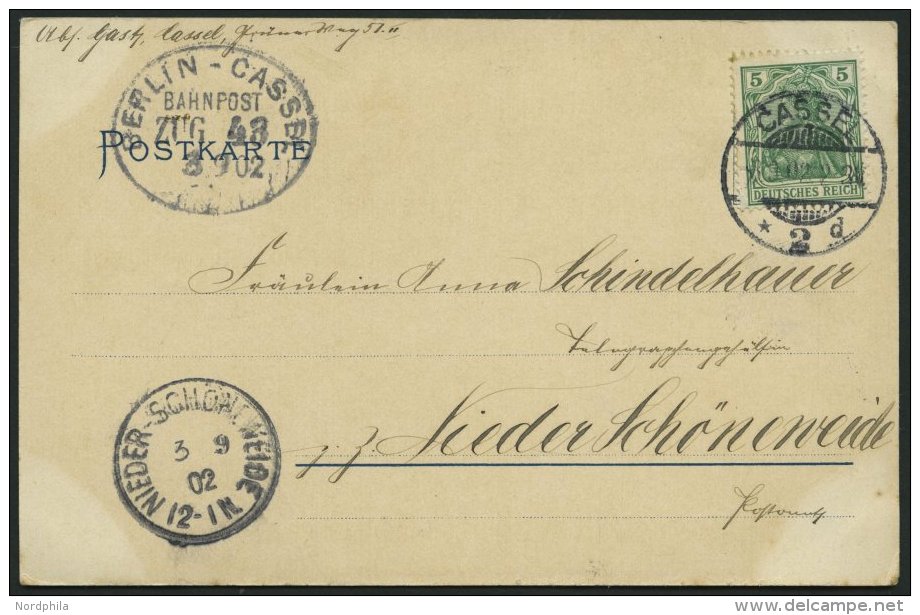 Abs. Gast, Cassel, Grüner Weg 51. II
BERLIN - CASSEL
BAHNPOST
ZUG 43
3 9 02
POSTKARTE
5 5
DEUTSCHES REICH
CASSEL
* 2 d
Fräulein Anna Schindelhauer
Telegraphengehülfin
z. Z. Nieder Schöneweide
Postamt
NIEDER-SCHÖNEWEIDE
3 9
02
12-1 N.
Nordphila
delcampe.net